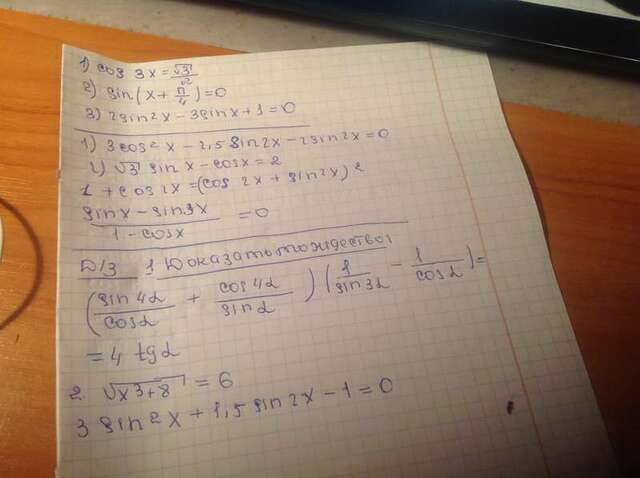 1) cos 3x = √3/2
2) sin(x + π/4) = 0
3) 2sin2x - 3sinx + 1 = 0
1) 3cos²x - 2,5 sin2x - 2sin2x = 0
2) √3 sinx - cosx = 2
1 + cos2x = (cos2x + sin2x)²
(sinx - sin3x)/(1 - cosx) = 0
D/З 1 Доказать тождество:
(sin4α/cosα + cos4α/sinα)(1/sin3α - 1/cosα) =
= 4 tgα
2. √(x3+8) = 6
3 sin²x + 1,5 sin2x - 1 = 0